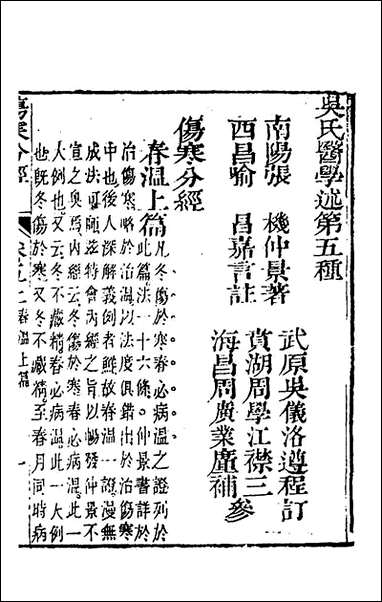 吳氏醫學述第五種
南陽張 機仲景著
西昌喻 昌嘉言註
武原吳儀洛遵程訂
賁湖周學江襟三
海昌周廣業廑補參
傷寒分經
春溫上篇
凡冬傷於寒春必病溫之證列於
此篇法一十六條仲景書詳於
治傷寒略於治溫以法度俱錯出於治傷寒
中也後人深解義例者鮮故春溫一證漫無
成法可師茲特會內經之旨以暢發仲景不
宣之奧焉內經云冬傷於寒春必病溫此一
大例也又云冬不藏精春必病溫此一大例
也旣冬傷於寒又冬不藏精至春月同時病
傷寒分經
春溫上篇